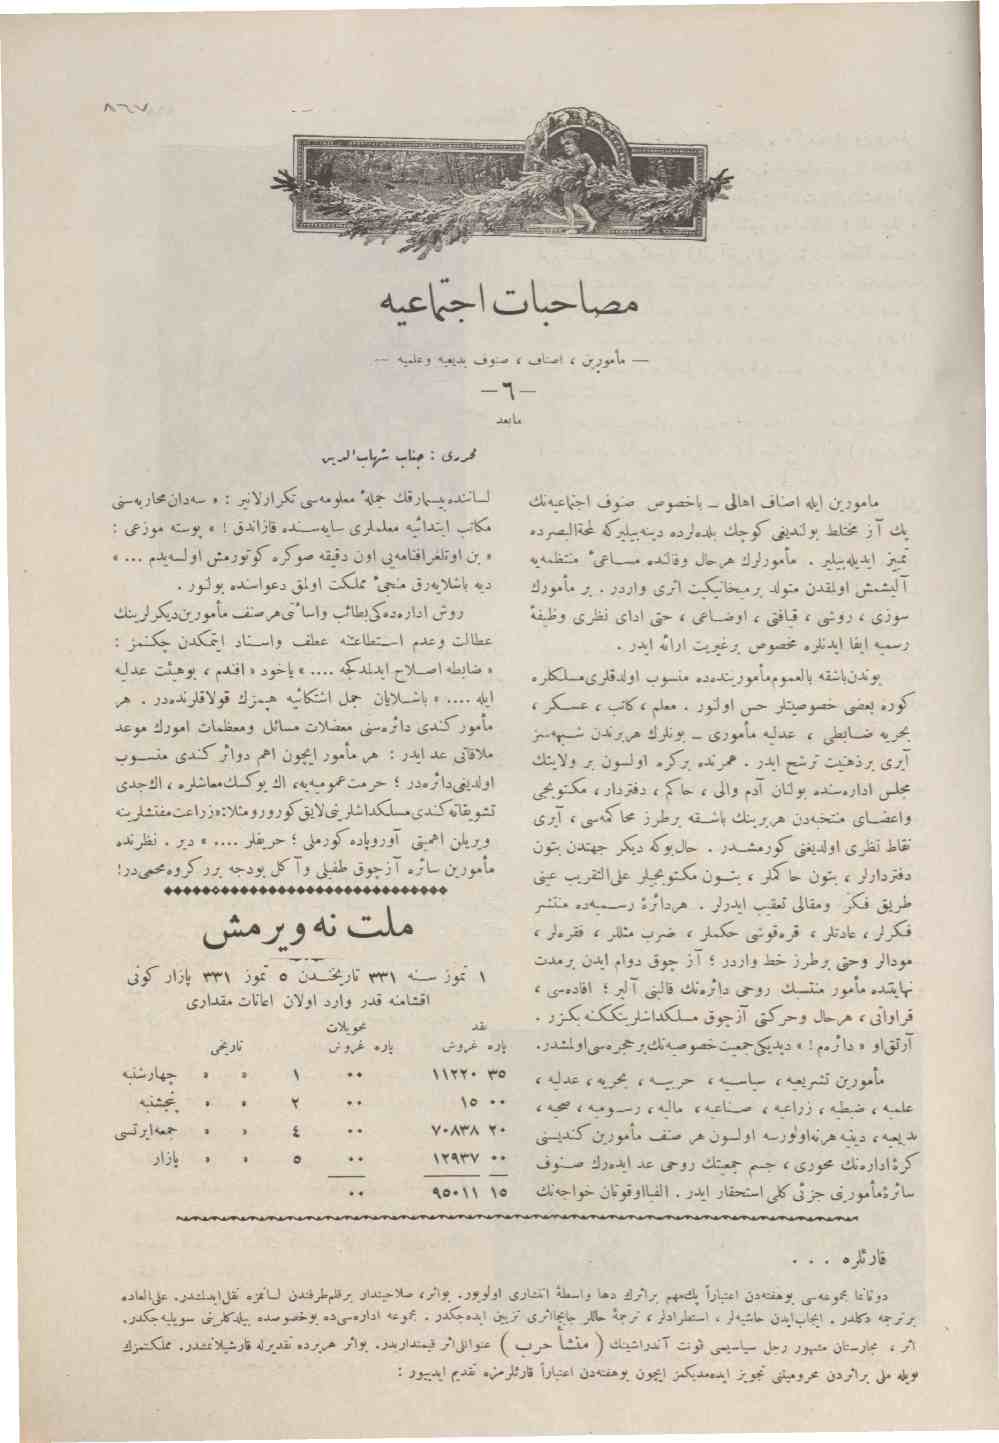 ٨٦٧
مصاحبات اجتماعیه
— مأمورین ، اصناف ، صنوف بدیعیه و علمیه —
— ٦ —
مابعد
محرری : جناب شهاب الدین
مامورین ایله اصناف اهالی ــ باخصوص صنوف اجتماعیه‌نك
پك آز مختلط بولندیغی كوچك بلده‌لرده دینه‌بیلیركه لمحة‌البصرده
تمییز ایدیله‌بیلیر . مأمورلرك هرحال وقالنده مساعیٔ منتظمه‌یه
آلیشمش اولمقدن متولد برمیخانیكیت اثری واردر . بر مأمورك
سوزی ، روشی ، قیافتی ، اوضاعی ، حتی ادای نظری وظیفهٔ
رسمیه ایفا ایدنلره مخصوص برغیریت ارائه ایدر .
بوندن باشقه بالعموم مأموریننده‌ده منسوب اولدقلری مسلكلره
كوره بعضی خصوصیتلر حس اولنور . معلم ، كاتب ، عسكر ،
بحریه ضابطی ، عدلیه مأموری ــ بونلرك هربرندن شبهه‌سز
آیری برذهنیت ترشح ایدر . همرنده بركره اولسون بر ولایتك
مجلس اداره‌سنده بولنان آدم والی ، حاكم ، دفتردار ، مكتوبجی
واعضای منتخبه‌دن هربرینك باشقه برطرز محاكمه‌سی ، آیری
نقاط نظری اولدیغنی كورمشدر . حال‌بوكه دیكر جهتدن بتون
دفتردارلر ، بتون حاكملر ، بتون مكتوبجیلر علی‌التقریب عینی
طریق فكر ومقالی تعقیب ایدرلر . هردائرهٔ رسمیه‌ده منتشر
فكرلر ، عادتلر ، قره‌قوشی حكملر ، ضرب مثللر ، فقره‌لر ،
مودالر وحتی برطرز خط واردر ؛ آز چوق دوام ایدن برمدت
نهایتنده مأمور منتسك روحی دائره‌نك قالبنی آلیر ؛ افاده‌سی ،
قراوانی ، هرحال وحركتی آزچوق مسلكداشلرینككنه بكزر .
آرتق او « دائره‌م ! » دیدیكی جمعیت خصوصیه‌نك برحجره‌سی اولمشدر.
مأمورین تشریعیه ، سیاسیه ، حربیه ، بحریه ، عدلیه ،
علمیه ، ضبطیه ، زراعیه ، صناعیه ، مالیه ، رسومیه ، صحیه ،
بدیعیه ، دینیه هرنه‌اولورسه اولسون هر صنف مأمورین كندیسنی
كرهٔ اداره‌نك محوری ، جسم جمعیتك روحی عد ایده‌رك صنوف
سائرهٔ‌مأمورینی جزئی كلی استحقار ایدر . الفبااوقوتان خواجه‌نك
لساننده بیسمارقك جملهٔ معلومه‌سی تكرارلانیر : « سه‌دان محاربه‌سنی
مكاتب ابتدائیه معلملری سایه‌سنده قازاندق ! » پوسته موزعی :
« بن اوتلغرافنامه‌یی اون دقیقه صوكره كوتورمش اولسه‌یدم ... »
دیه باشلایه‌رق منجیٔ مملكت اولمق دعواسنده بولنور .
روش اداره‌ده‌كی بطائب واسائتی هرصنف مأمورین دیكرلرینك
عطالت وعدم استطاعتنه عطف واسناد ایتمكدن چكنمز :
« ضابطه اصلاح ایدلمدكجه .... » یاخود « افندم ، بوهیئت عدلیه
ایله .... » باشلایان جمل اشتكائیه هیمزك قولاقلرنده‌در . هر
مأمور كندی دائره‌سنی معضلات مسائل ومعظمات امورك موعد
ملاقاتی عد ایدر : هر مأمور ایچون اهم دوائر كندی منسوب
اولدیغی دائره‌در ؛ حرمت عمومیه‌یه، اك یوكسك معاشلره ، اك جدی
تشویقاته كندی مسلكداشلرینی لایق كورور ومثلا: «زراعت مفتشلرینه
ویریلن اهمیتی آوروپاده كورملی ؛ حریفلر .... » دیر . نظرنده
مأمورین سائره آزچوق طفیلی وآكل بودجه برر كروه محمی‌در!
ملت نه ویرمش
١ تموز سنه ٣٣١ تاریخندن ٥ تموز ٣٣١ پازار كونی
اقشامنه قدر وارد اولان اعانات مقداری
نقد تحویلات
پاره غروش پاره غروش تاریخی
٣٥ ١١٢٢٠ ٠٠ ١ » » چهارشنبه
٠٠ ١٥ ٠٠ ٢ » » پنجشنبه
٢٠ ٧٠٨٣٨ ٠٠ ٤ » » جمعه‌ایرتسی
٠٠ ١٢٩٣٧ ٠٠ ٥ » » پازار
١٥ ٩٥٠١١ ٠٠
قارئلره . . .
دوناغا مجموعه‌سی بوهفته‌دن اعتباراً پك‌مهم براثرك دها واسطهٔ انتشاری اولویور. بواثر، صلاحیتدار برقلم طرفندن لسانمزه نقل‌ایدلمشدر. علی‌العاده
برترجمه دكلدر . ایجاب‌ایدن حاشیه‌لر ، استطرادلر ، ترجمهٔ حاللر جابجااثری تزیین ایده‌جكدر . مجموعه اداره‌سی‌ده بوخصوصده بیلدكلرینی سویلیه‌جكدر.
اثر ، مجارستان مشهور رجل سیاسیسی قونت آندراشینك ( منشأ حرب ) عنوانلی‌اثر قیمتداریدر. بواثر هربرده تقدیرله قارشیلانمشدر. مملكتمزك
بویله ملی براثردن محرومیتنی تجویز ایده‌مدیكمز ایچون بوهفته‌دن اعتباراً قارئلرمزه تقدیم ایدییورز :